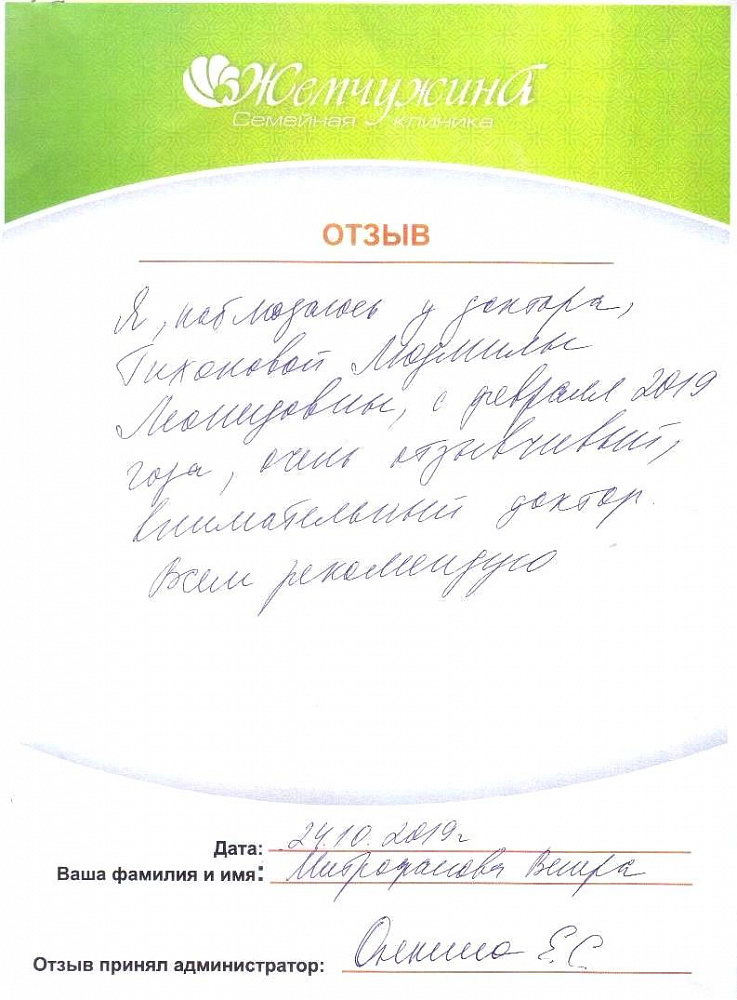 Жемчужина
Семейная клиника
ОТЗЫВ
Я, наблюдаюсь у доктора,
Тихоновой Людмилы
Леонидовны, с февраля 2019
года, очень отзывчивый,
внимательный доктор.
Всем рекомендую
Дата: 24.10.2019г
Ваша фамилия и имя: Митрофанова
Отзыв принял администратор: Е.С.